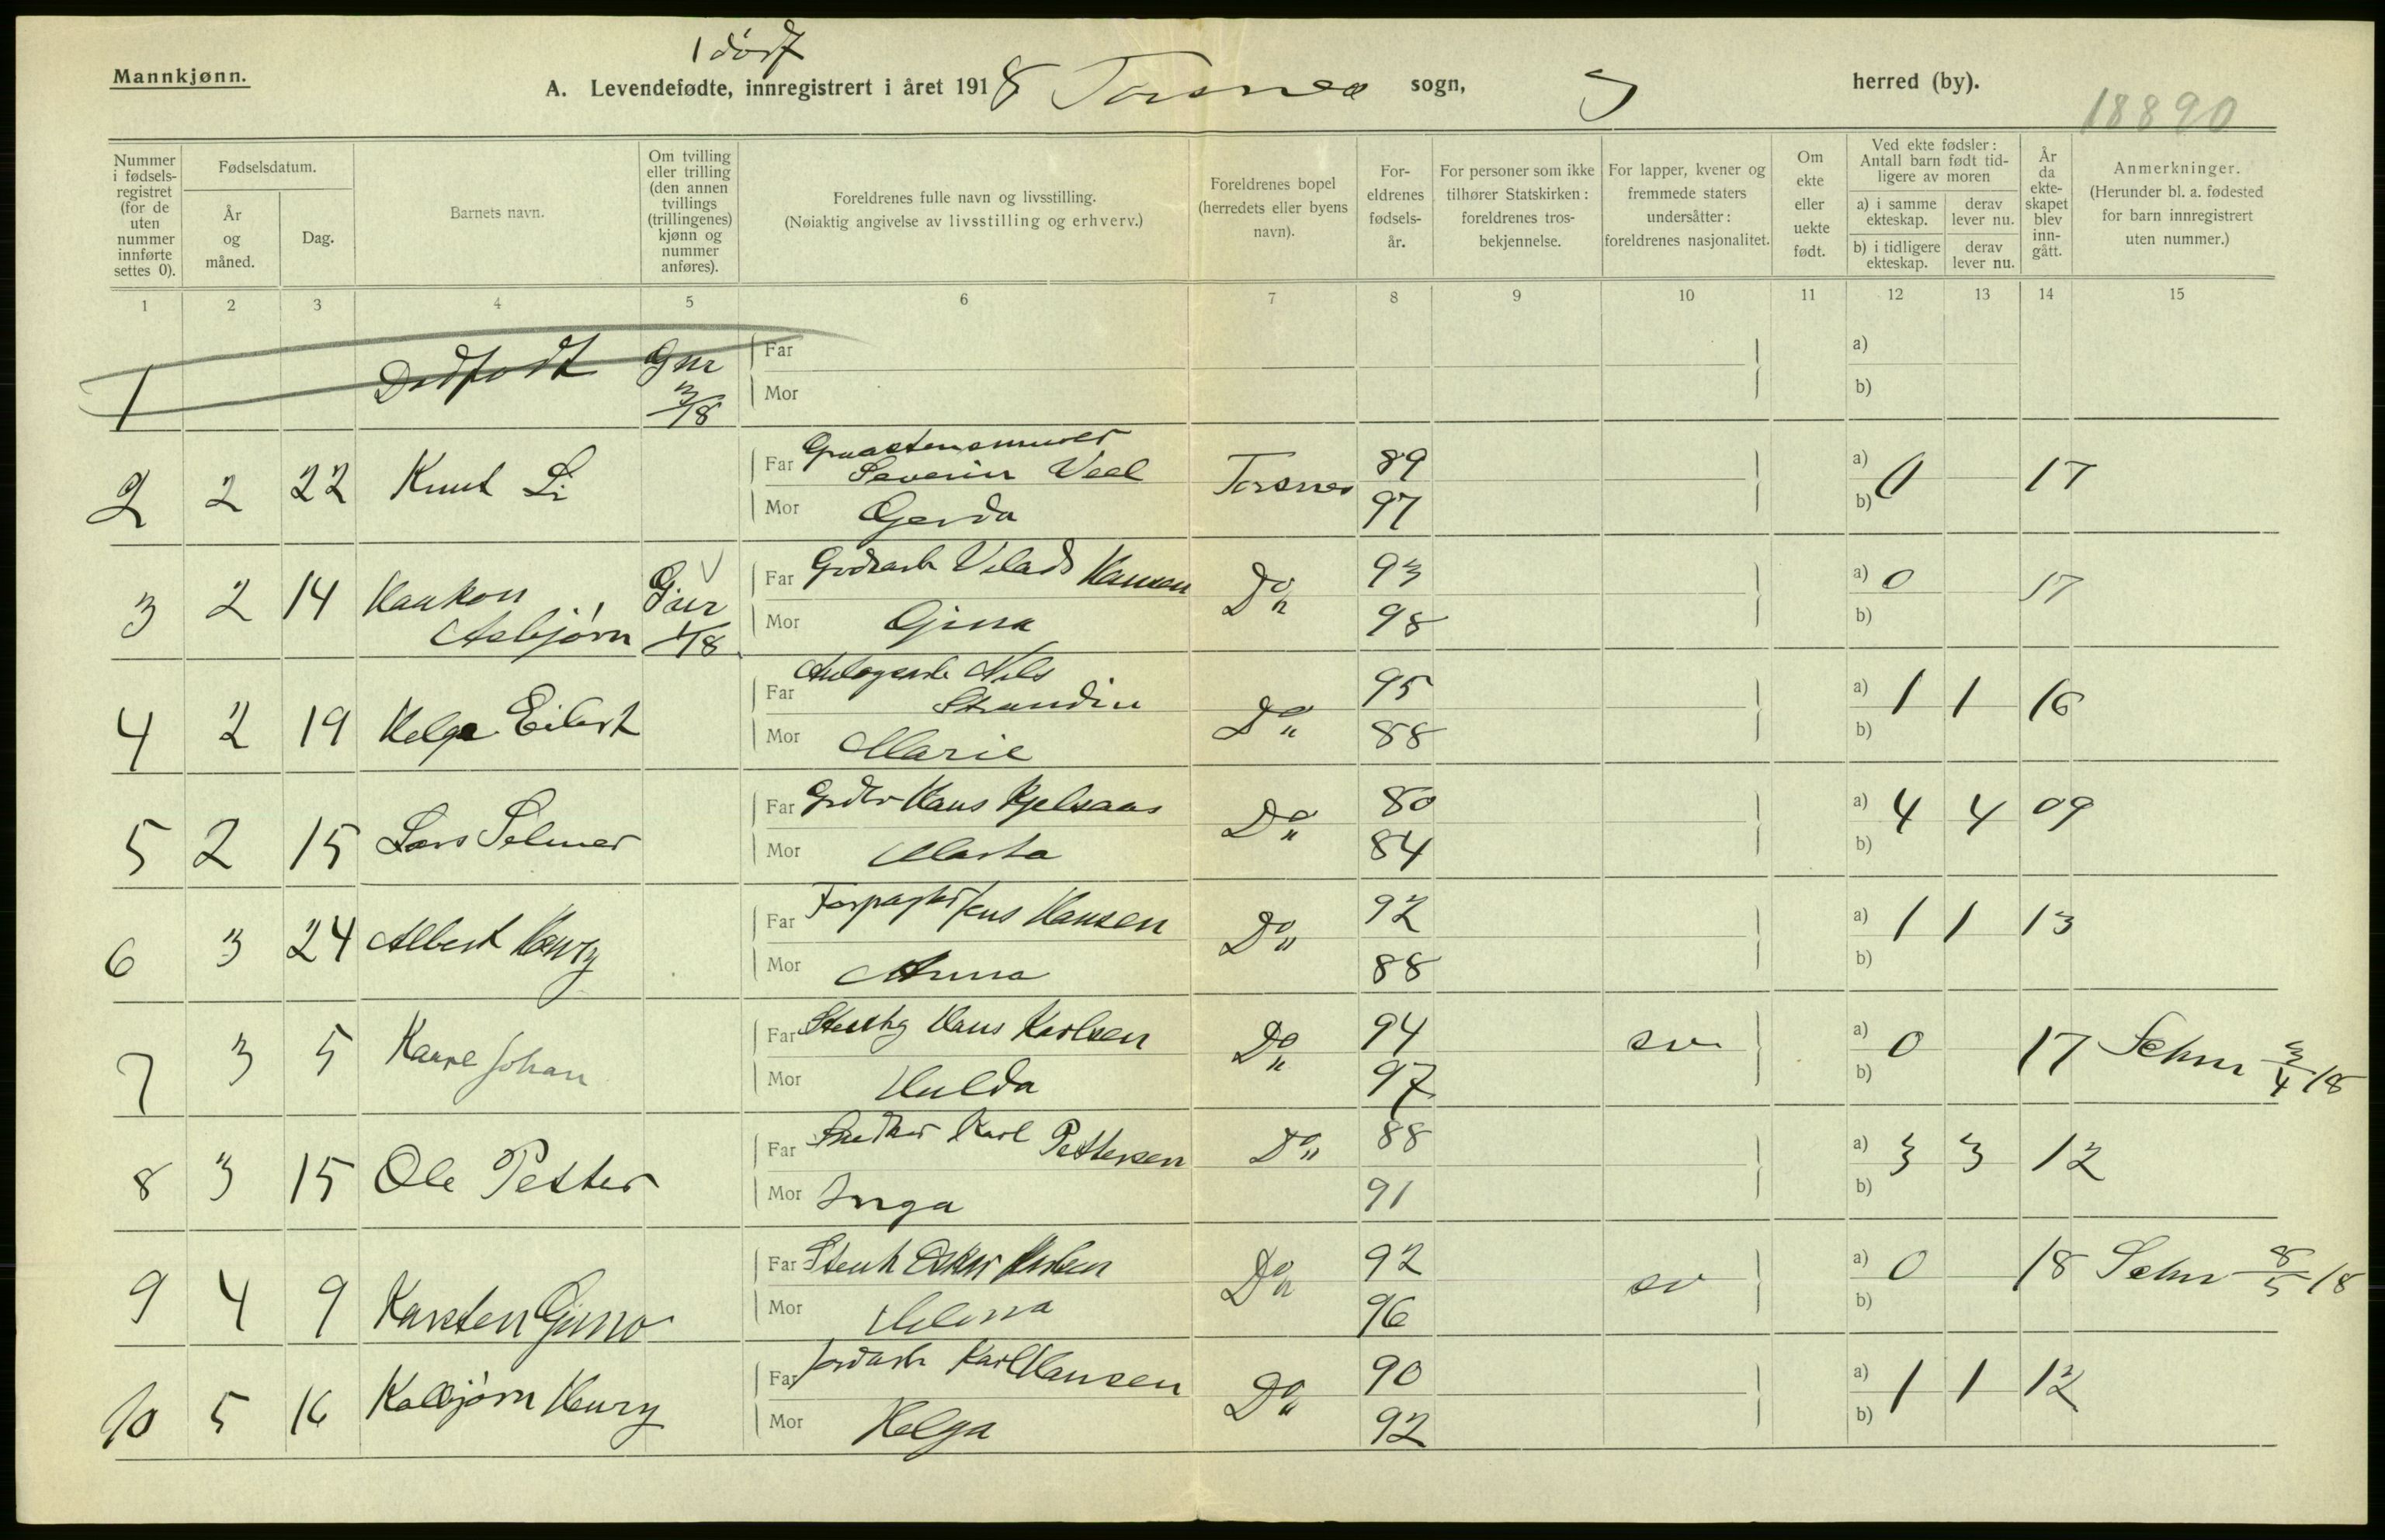 1 dödf
Mannkjønn.
A. Levendefødte, innregistrert i året 1918 Torsnes sogn, herred (by).
18890
Nummer i fødsels-registret (for de uten nummer innførte settes 0).
Fødselsdatum.
År og måned.
Dag.
Barnets navn.
Om tvilling eller trilling (den annen tvillings (trillingenes) kjønn og nummer anføres).
Foreldrenes fulle navn og livsstilling.
(Nøiaktig angivelse av livsstilling og erhverv.)
Foreldrenes bopel (herredets eller byens navn).
For-eldrenes fødsels-år.
For personer som ikke tilhører Statskirken: foreldrenes tros-bekjennelse.
For lapper, kvener og fremmede staters undersåtter: foreldrenes nasjonalitet.
Om ekte eller uekte født.
Ved ekte fødsler: Antall barn født tid-ligere av moren
a) i samme ekteskap.
derav lever nu.
b) i tidligere ekteskap.
derav lever nu.
År da ekte-skapet blev inn-gått.
Anmerkninger.
(Herunder bl. a. fødested for barn innregistrert uten nummer.)
1 2 3 4 5 6 7 8 9 10 11 12 13 14 15
1 Dødfødt Far a)
3/8 Mor b)
2 2 22 Knut Li Far Severin Torsnes 89 a) 0 17
Mor Gerda 97 b)
3 2 14 Haakon Far Hansen Do 93 a) 0 17
Asbjørn 1/8 Mor Gina 98 b)
4 2 19 Helge Eilert Far Nils Strandin Do 95 a) 1 1 16
Mor Marie 88 b)
5 2 15 Lars Selmer Far Hans Kjelsaas Do 80 a) 4 4 09
Mor Marta 84 b)
6 3 24 Albert Henry Far Forpagter Jens Hansen Do 92 a) 1 1 13
Mor Anna 88 b)
7 3 5 Kaare Johan Far Stenhg Hans Karlsen Do 94 sv a) 0 17 Schm 3/4 18
Mor Hulda 97 b)
8 3 15 Ole Petter Far Snedker Karl Pettersen Do 88 a) 3 3 12
Mor Inga 91 b)
9 4 9 Karsten Gunno Far Stenh Oskar Do 92 sv a) 0 18 Schm 8/5 18
Mor Helena 96 b)
10 5 16 Kolbjørn Henry Far Jordarb Karl Hansen Do 90 a) 1 1 12
Mor Helga 92 b)